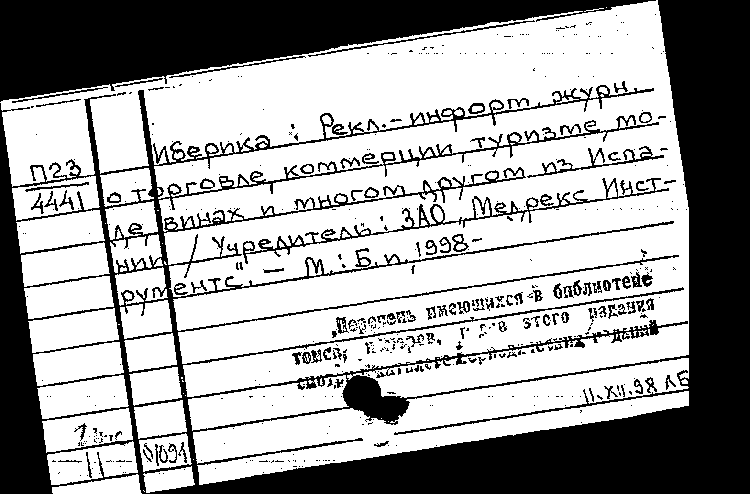 П23
4441
Иберика : Рекл.-информ. журн.
о торговле, коммерции, туризме, мо-
де, винах и многом другом из Испа-
нии / Учредитель: ЗАО „Медрекс Инст-
рументс". - М. : Б.и., 1998-
Перечень имеющихся в библиотеке
томов, номеров, этого издания
смотри в каталоге периодических изданий
11
01094
11.XII.98 ЛБ